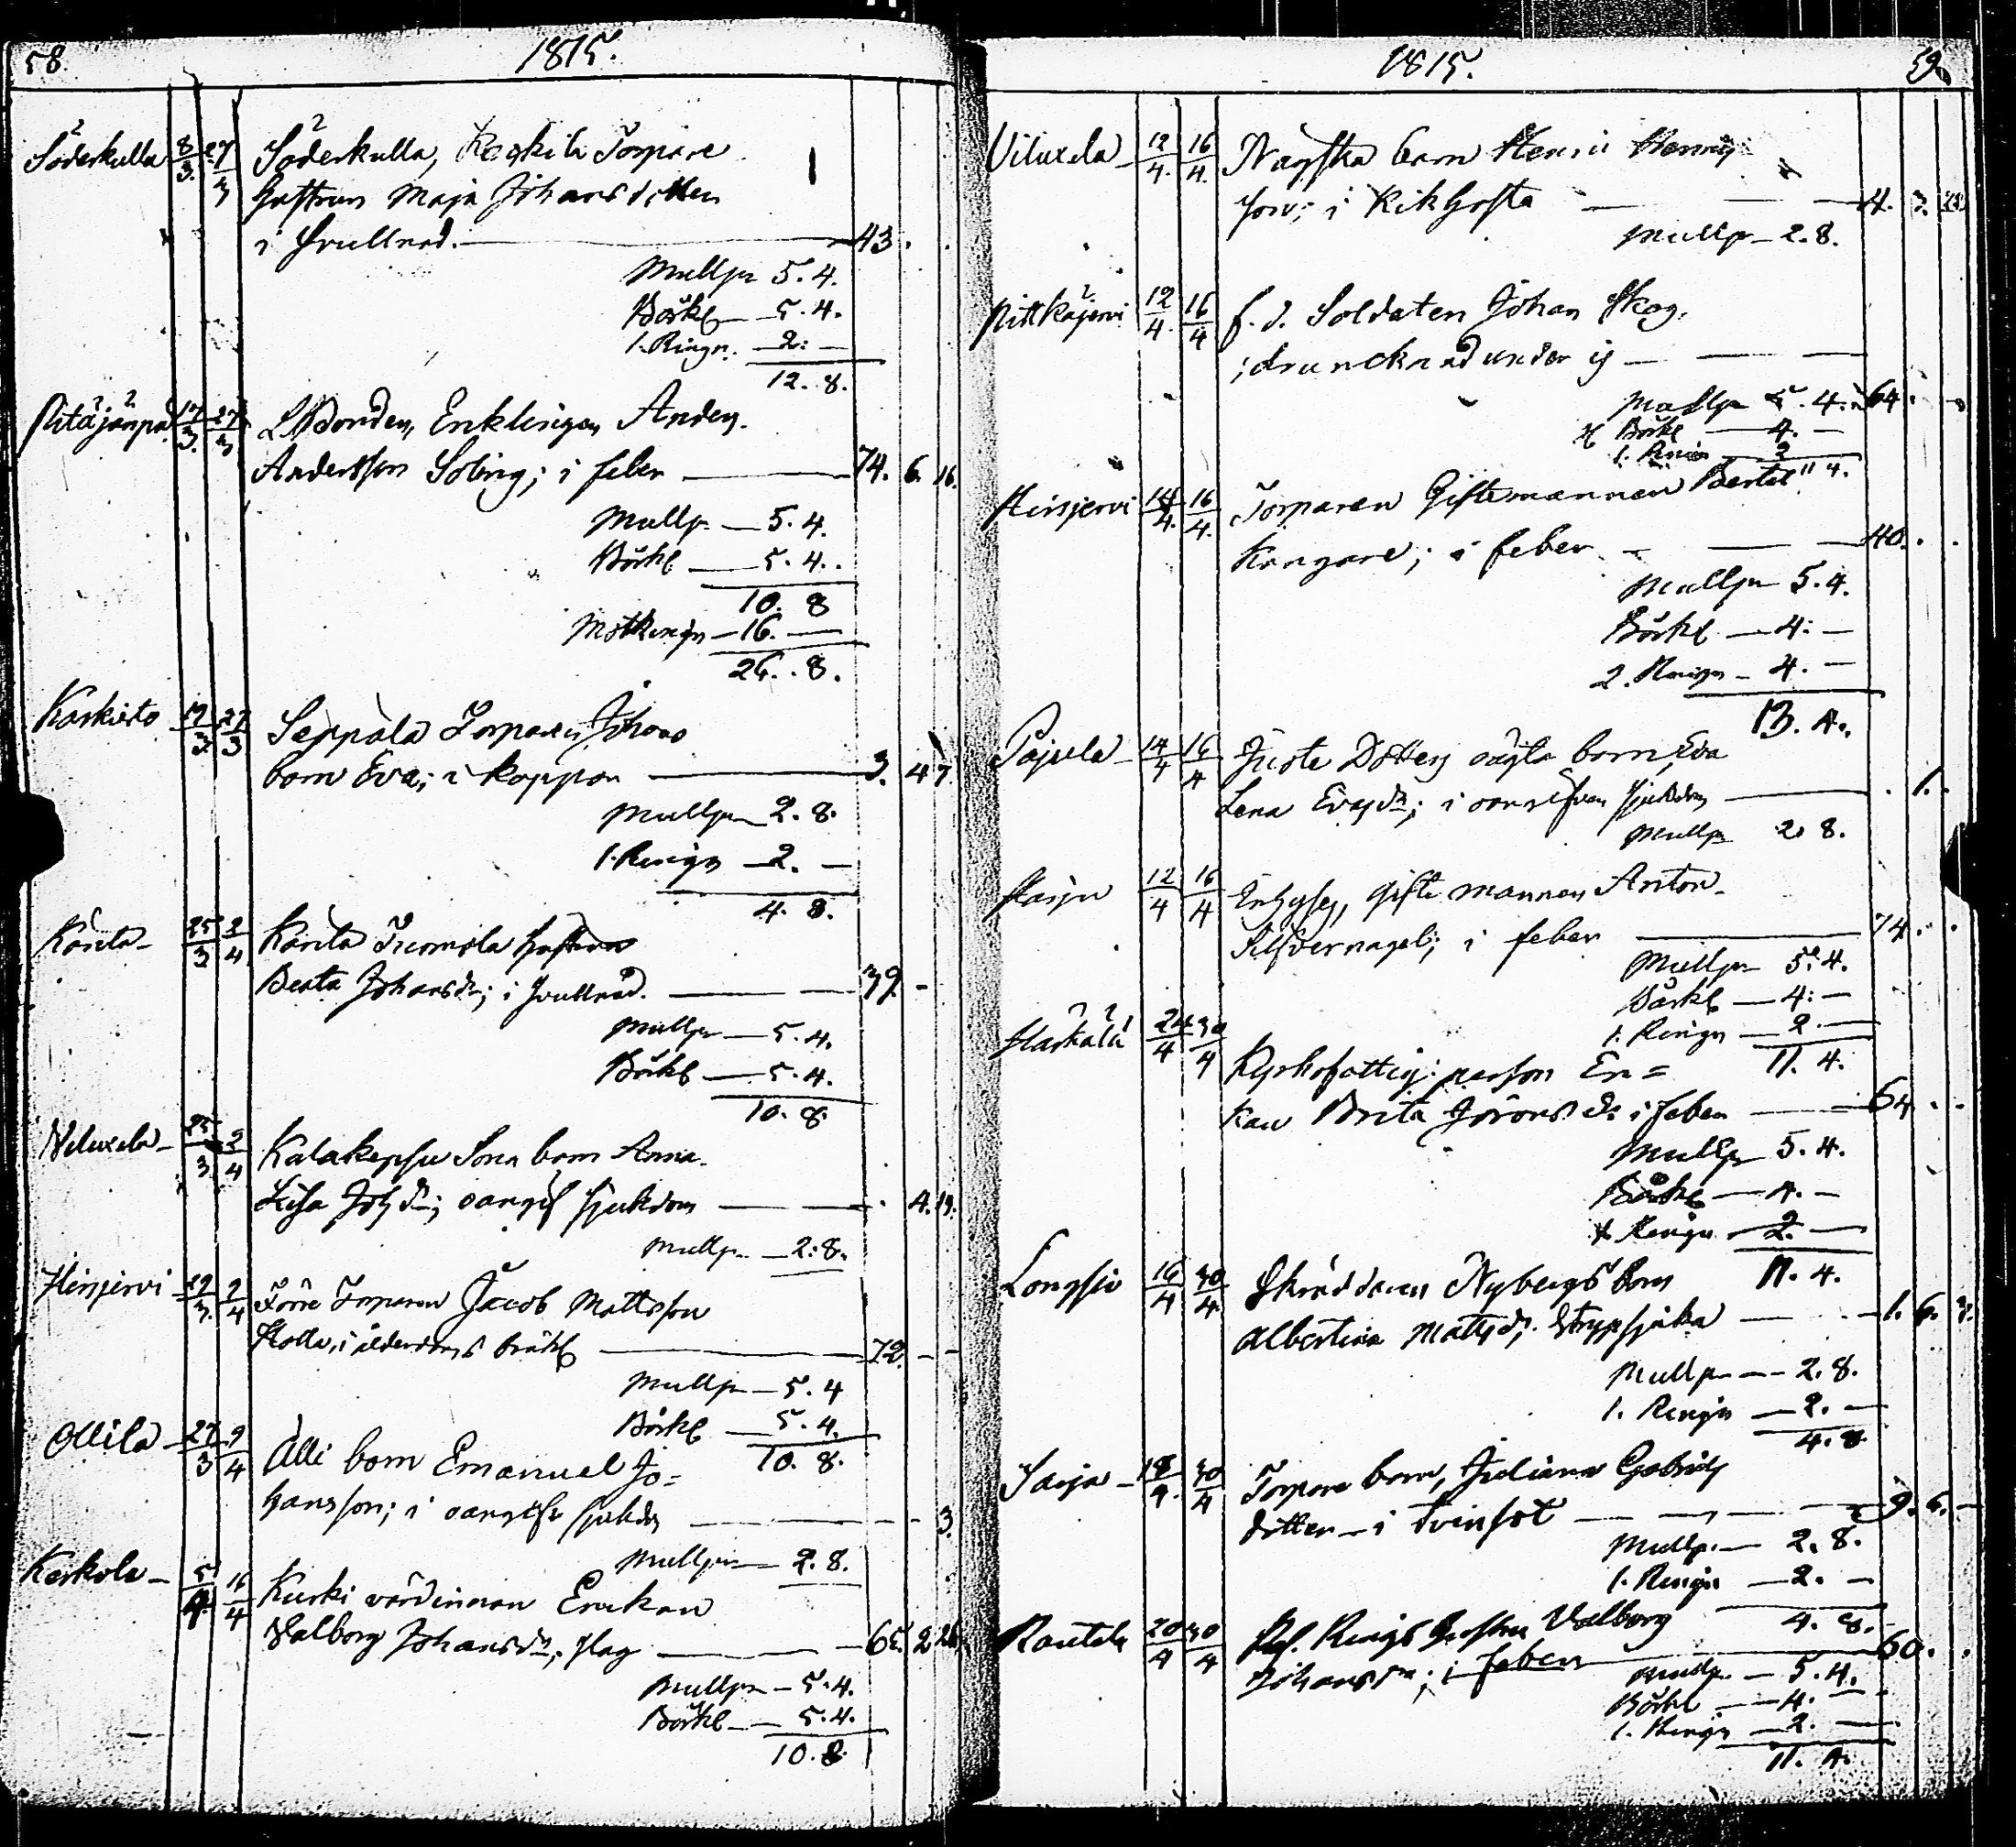 58. 1815.
Söderkulla 8/3. 27/3 Söderkulla, Torpare
hustrun Maja Johansdotter
i — 43.
Mullpn 5. 4.
Bårkl — 5. 4.
1. Ringn. — 2. —
12. 8.
17/3. 27/3 Enklingen Anders
Andersson Soling; i feber — 74. 6. 16.
Mullp — 5. 4.
Bårkl — 5. 4.
10. 8
16. —
26. 8.
Koskisto 19/3 27/3 Seppälä Torparen Johans
barn Eva; i koppor — 3. 4 7.
Mullpn 2. 8.
1. Ringn — 2. —
4. 8.
Kanta — 25/3 2/4 Kanta Tuomola hustrun
Beata Johansdr; i — 39. -
Mullpn — 5. 4.
Bårkl — 5. 4.
10. 8.
Viluxela — 25/3 2/4 Sona barn Anna
Lisa Johsdr; oangif sjukdom — 4. 19.
Mullpn — 2. 8.
Hirsjervi 29/3. 9/4 Förre Torparen Jacob Mattsson
Holla, i ålderdoms bråkl — 72. - -
Mullpn — 5. 4
Bårkl — 5. 4.
10. 8.
Ollila — 27/3 9/4 Alli barn Emanuel Jo=
hansson; i oangifn sjukdom — 3.
Mullpn — 2. 8.
Kaskola — 5/4 16/4 Kurki värdinnan Enkan
Valborg Johansdr, slag — 65. 2 26.
Mullpn — 5. 4.
Bårkl — 5. 4.
10. 8.
1815. 59.
Viluxela — 12/4. 16/4. barn Henric Henrics
son; i Kikhosta — 4. 3.
Mullpn — 2. 8.
Pitkäjervi 12/4. 16/4 f. d. Soldaten Johan Skog,
druncknad under is —
Mullpn 5. 4. 64
Bårkl — 4. —
1. Ringn 2
11 4.
Hirsjervi 14/4. 16/4. Torparen Giftemannen Bertel
Kangare; i feber — 40.
Mullpn 5. 4.
Bårkl — 4. —
2. Ringn — 4. —
13. 4.
Pajula — 14/4 16/4 Juste Dotters oägta barn, Eva
Lena Evasdr; i oangifven sjukdom — 1.
Mullpn 2. 8.
Harju 12/4 16/4 Inhyses, Gifte mannen Anton
Silfvernagel; i feber — 74.
Mullpn 5. 4.
Bårkl — 4. —
1. Ringn — 2. —
11. 4.
24/4 30/4 Kyrkofattig person En=
kan Brita Jöransdr i feber — 64
Mullpn 5. 4.
Bårkl — 4. —
1 Ringn — 2. —
11. 4.
Longsjö 16/4 30/4 Skräddaren Nybergs barn
Albertina Mattsdr. Strypsjuka — 1. 6. 3.
Mullpn — 2. 8.
1. Ringn — 2. —
4. 8
Sarja — 18/4. 30/4 Torpare barn, Juliana Gabriels
dotter — i tvinsot — 9. 6. —
Mullp. — 2. 8.
1. Ringn — 2. —
4. 8.
Rautela 20/4 30/4 Hustru Valborg
Johansdr; i feber — 60.
Mullpn — 5. 4.
Bårkl — 4. —
1. Ringn — 2. —
11. 4.